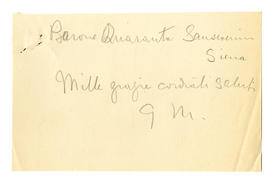 Barone Quaranta Sanseverino
Siena
Mille grazie cordiali saluti
G M.